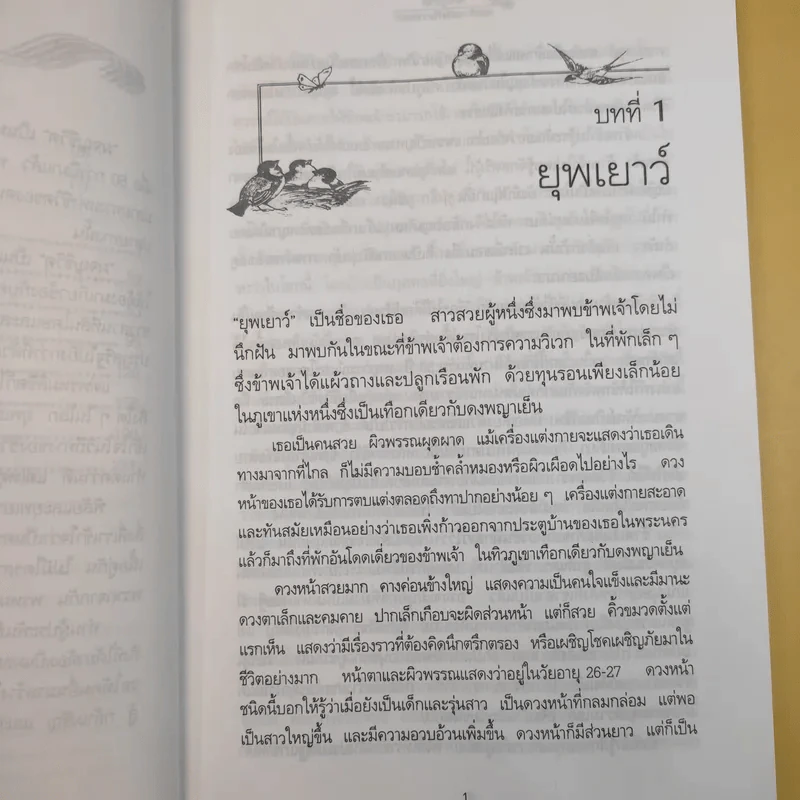 บทที่ 1
ยุพเยาว์
"ยุพเยาว์" เป็นชื่อของเธอ สาวสวยผู้หนึ่งซึ่งมาพบข้าพเจ้าโดยไม่
นึกฝัน มาพบกันในขณะที่ข้าพเจ้าต้องการความวิเวก ในที่พักเล็ก ๆ
ซึ่งข้าพเจ้าได้แผ้วถางและปลูกเรือนพัก ด้วยทุนรอนเพียงเล็กน้อย
ในภูเขาแห่งหนึ่งซึ่งเป็นเทือกเดียวกับดงพญาเย็น
เธอเป็นคนสวย ผิวพรรณผุดผาด แม้เครื่องแต่งกายจะแสดงว่าเธอเดิน
ทางมาจากที่ไกล ก็ไม่มีความบอบช้ำคล้ำหมองหรือผิวเผือดไปอย่างไร ดวง
หน้าของเธอได้รับการตบแต่งตลอดถึงทาปากอย่างน้อย ๆ เครื่องแต่งกายสะอาด
และทันสมัยเหมือนอย่างว่าเธอเพิ่งก้าวออกจากประตูบ้านของเธอในพระนคร
แล้วก็มาถึงที่พักอันโดดเดี่ยวของข้าพเจ้า ในทิวภูเขาเทือกเดียวกับดงพญาเย็น
ดวงหน้าสวยมาก คางค่อนข้างใหญ่ แสดงความเป็นคนใจแข็งและมีมานะ
ดวงตาเล็กและคมคาย ปากเล็กเกือบจะผิดส่วนหน้า แต่ก็สวย คิ้วขมวดตั้งแต่
แรกเห็น แสดงว่ามีเรื่องราวที่ต้องคิดนึกตรึกตรอง หรือเผชิญโชคเผชิญภัยมาใน
ชีวิตอย่างมาก หน้าตาและผิวพรรณแสดงว่าอยู่ในวัยอายุ 26-27 ดวงหน้า
ชนิดนี้บอกให้รู้ว่าเมื่อยังเป็นเด็กและรุ่นสาว เป็นดวงหน้าที่กลมกล่อม แต่พอ
เป็นสาวใหญ่ขึ้น และมีความอวบอ้วนเพิ่มขึ้น ดวงหน้าก็มีส่วนยาว แต่ก็เป็น
1